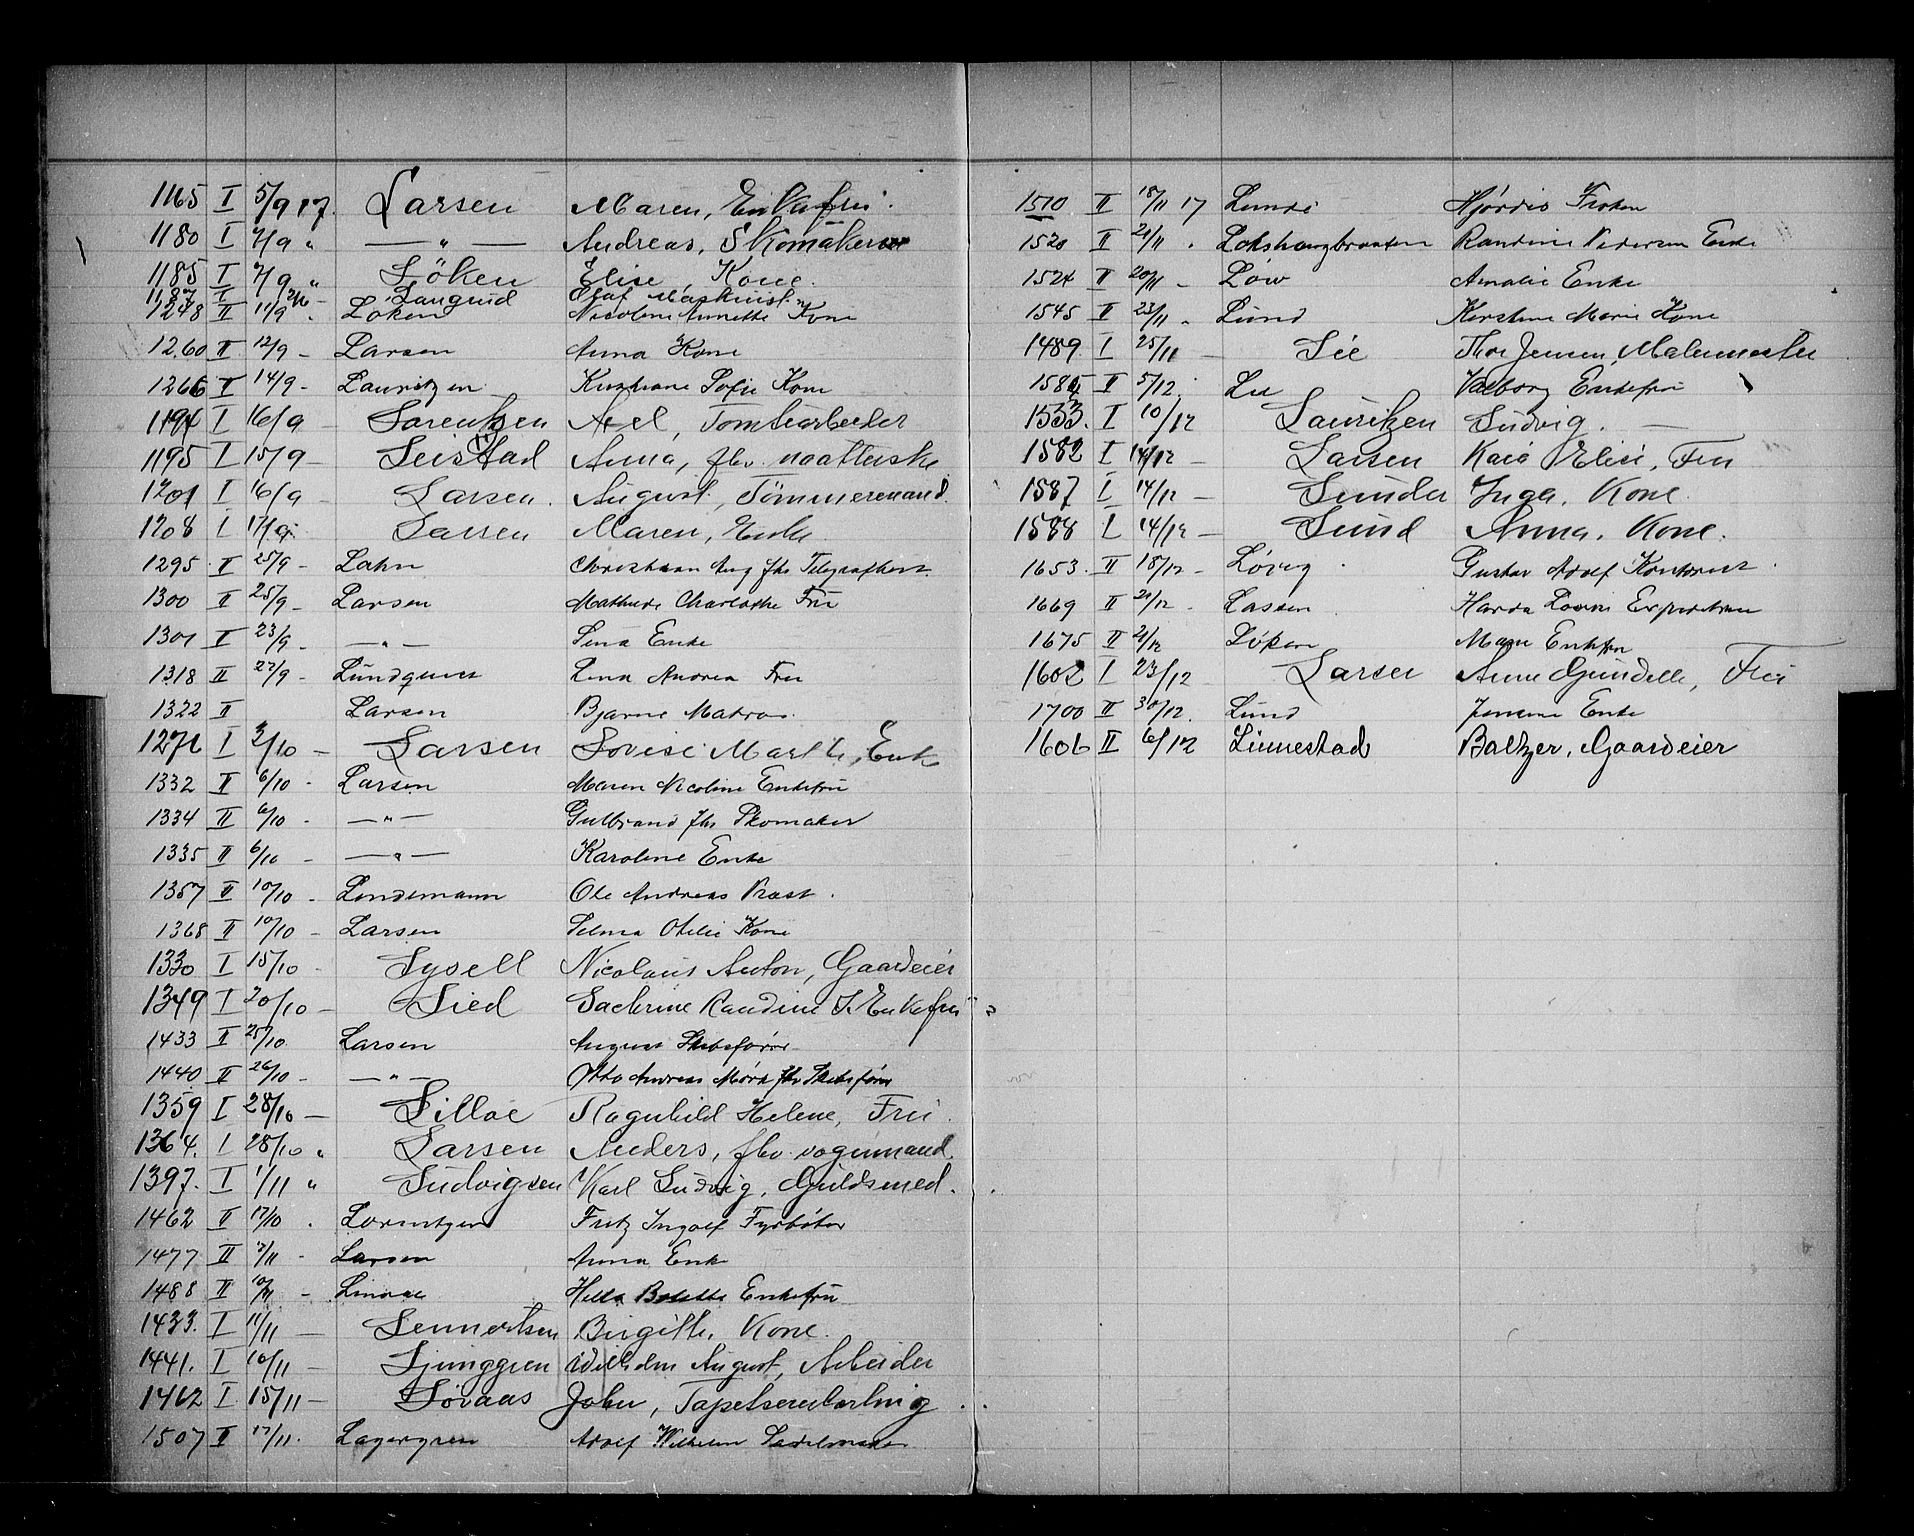 1165 I 5/9 17. Larsen Maren, Enkefru.
1180 I 7/9 " — " — Andreas, Skomaker
1185 I 7/9 " Löken Elise, Kone.
1187 I Langrud Olaf Maskinist
1248 II 11/9 . Løken Nicoline Annette Kone
1260 II 12/9 - Larsen Anna Kone
1266 II 14/9 - Lauritzen Kristiane Sofie Kone
1194 I 16/9 Lorentzen Axel, Tomtearbeider
1195 I 15/9 - Leistad Anna, fhv.
1201 I 16/9 - Larsen. August, Tömmermand.
1208 I 17/9 Larsen Maren, Enke
1295 II 25/9 - Lahn Christian Aug fhv Telegrafbest.
1300 II 25/9 - Larsen Mathilde Charlotte Fru
1301 II 23/9 - — " — Lena Enke
1318 II 27/9 - Lundquist Lina Andrea Fru
1322 II Larsen Bjarne Matros.
1271 I 2/10 - Larsen Lovise Marthe, Enke
1332 II 6/10 - Larsen Maren Nicoline Enkefru
1334 II 6/10 - — " — Gulbrand fhv Skomaker
1335 II 6/10 - — " — Karoline Enke
1357 II 10/10 - Lindemann Ole Andreas Præst.
1368 II 10/10 - Larsen Selma Otilie Kone
1330 I 15/10 - Lysell Nicolaus Anton, Gaardeier
1349 I 20/10 - Lied Randine S. Enkefru
1433 II 25/10 Larsen August Skibsfører
1440 II 26/10 - — " — Otto Andreas fhv Skibsfører
1359 I 28/10 — Lilloe Ragnhild Helene, Fru.
1364. I 28/10 " Larsen Anders, fhv. vognmand.
1397. I 1/11 " Ludvigsen Karl Ludvig, Guldsmed.
1462 II 17/10 . Lorentzen Fritz Ingolf Fyrbøter
1477 II 7/11 - Larsen Anna Enke
1488 II 10/11 - Lindal Enkefru
1433. I 11/11 — Lennertsen Birgitte, Kone.
1441. I 10/11 — Ljunggren Wilhelm August, Arbeider
1462 I 15/11 — Lövaas John, Tapetserer
1507 II 17/11. Lagergren Adolf Wilhelm Sadelmaker
1510 II 18/11 17 Lunde Hjørdis Frøken
1520 II 21/11 . Randine Pedersen Enke
1524 II 20/11 - Löw Amalie Enke
1545 II 23/11 - Lund Kirstine Marie Kone
1489. I 25/11 — Lie Thor Jensen, Malermester
II 5/12. Lie Valborg Enkefru
1533. I 10/12 Lauritzen Ludvig. —
1582 I 14/12 — Larsen Kaia Elise, Fru
1587 I 14/12 — Lunder Inga, Kone.
1588 I 14/12 — Lund Anna, Kone.
1653 II 18/12 - Løvig Gustav Adolf Kontorist
1669 II 21/12 - Lassen Lovise
1675 II 21/12 Løken Marie Enkefru
1602 I 23/12 Larsen Anne Gundelle, Fru
1700 II 30/12. Lund Jensine Enke
1606 II 6/12 Linnestad Baltzer, Gaardeier